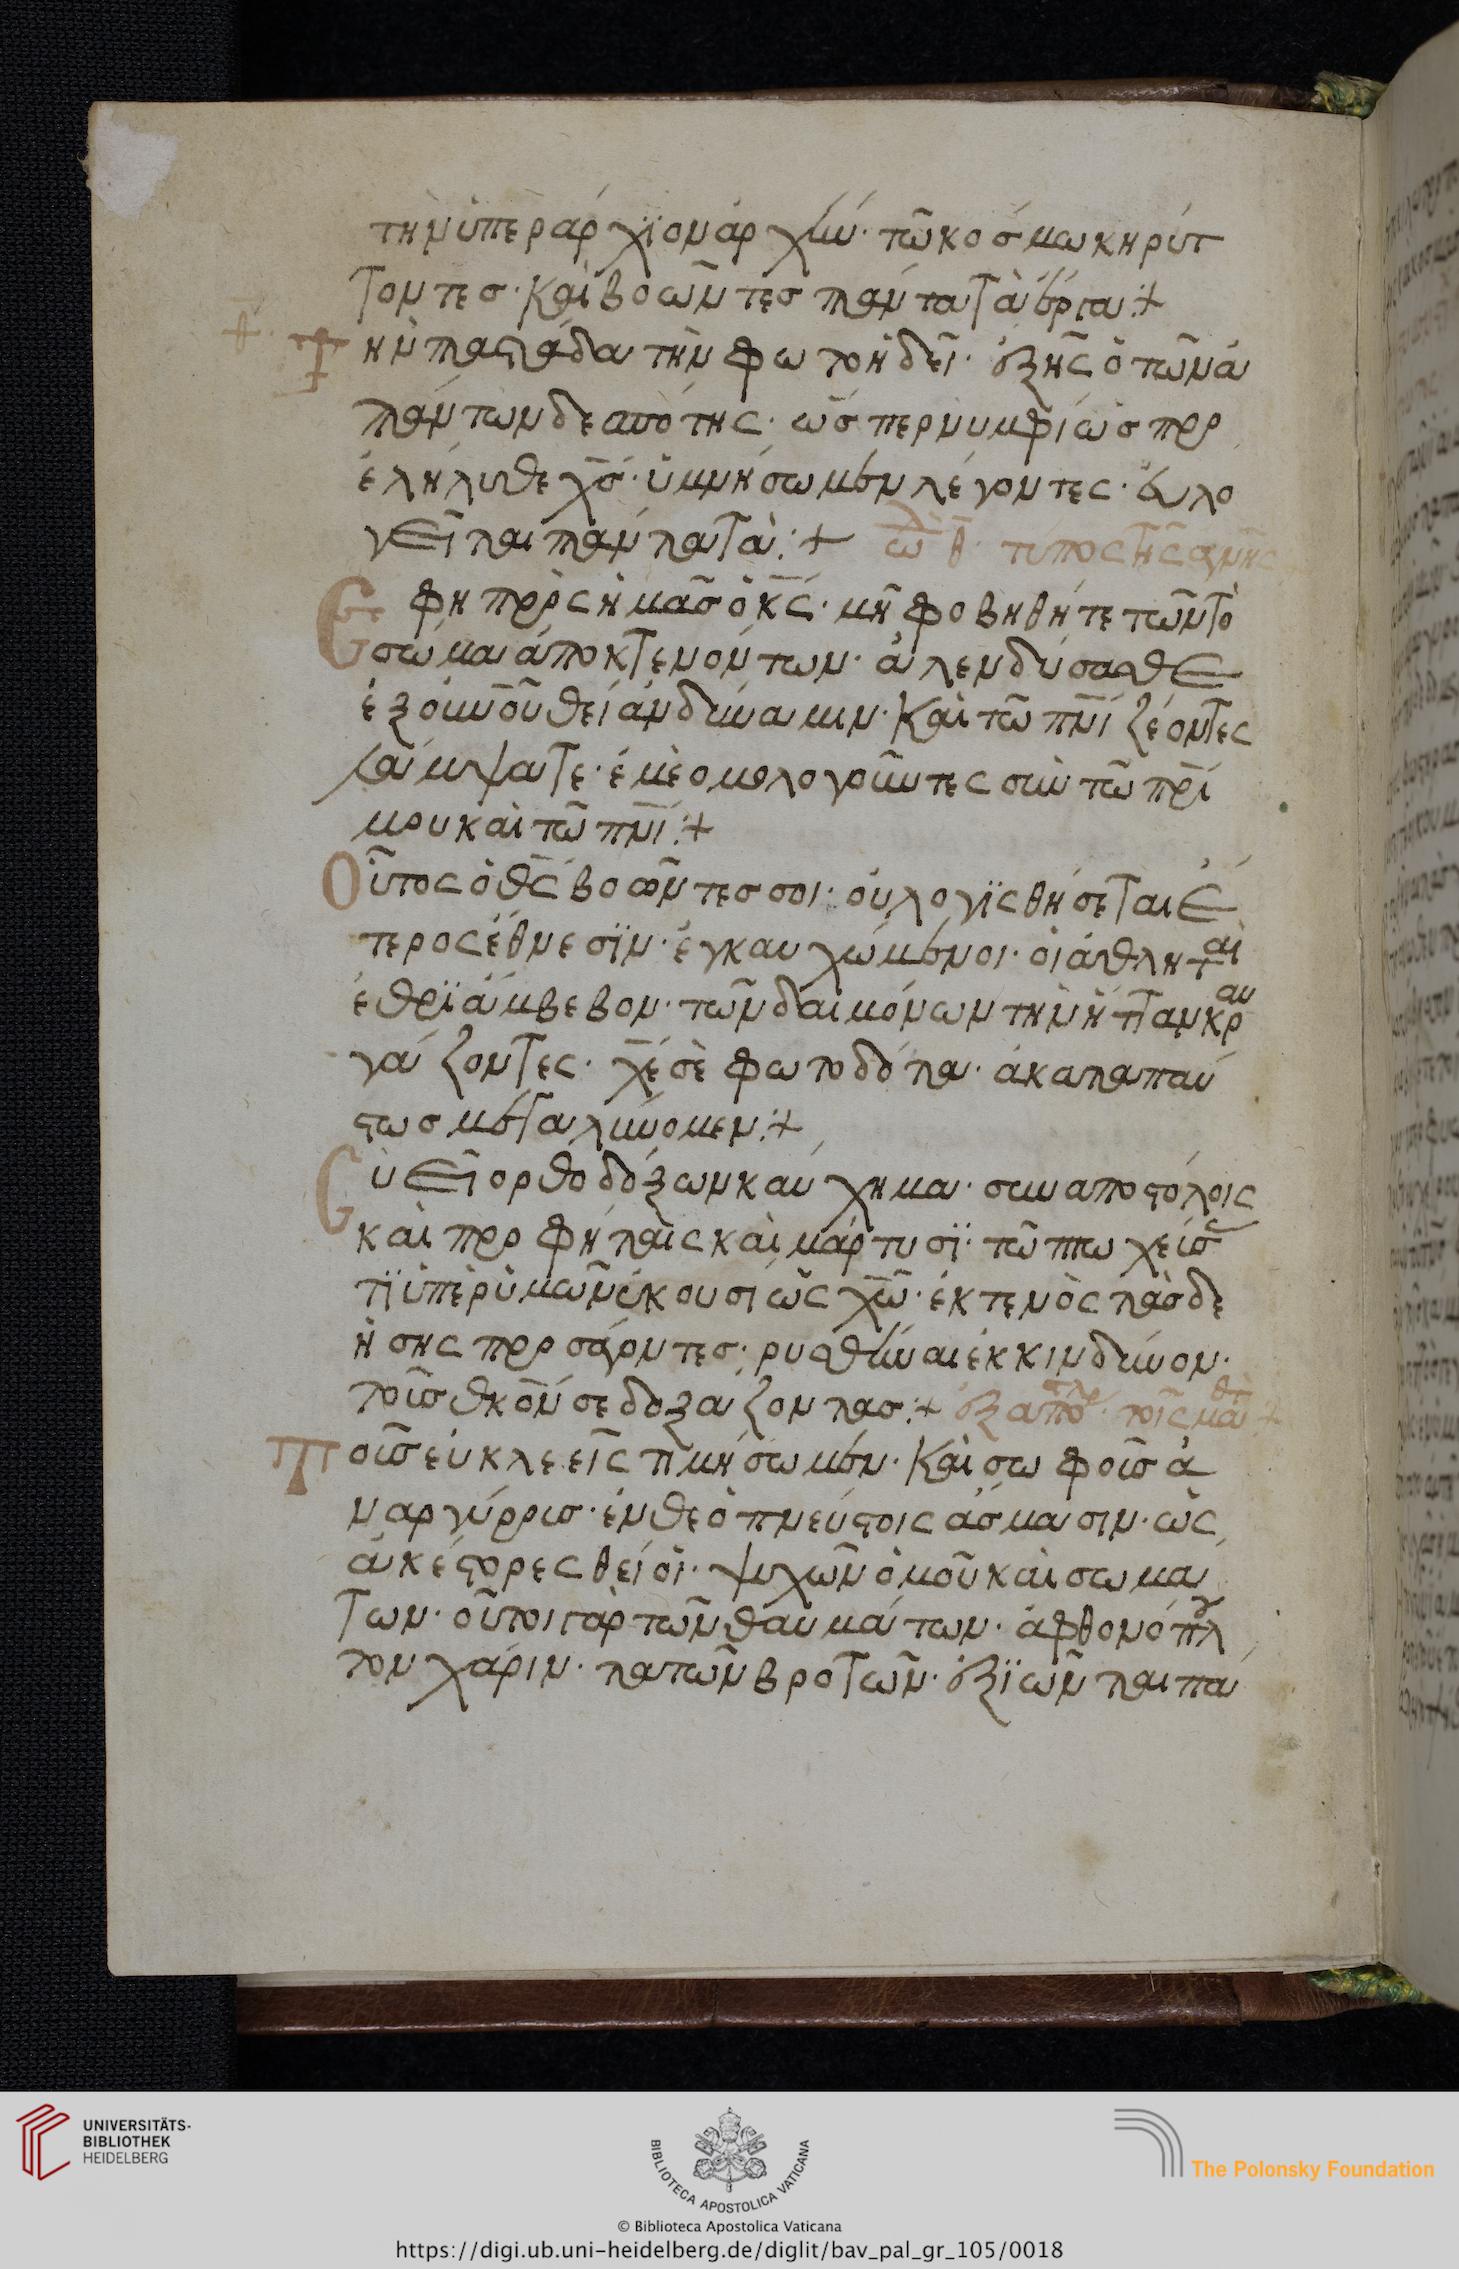 τὴν ὑπὲράρχϊον ἀρχήν· τῶ κόσμω κηρύτ
τοντες· καὶ βοῶντες πάντα τὰ ἔργα :+
Τὴν παστάδα τὴν φωτοηδεῖ· ἐξ ἧς ὁ τῶν ἁ
πάντων δεσπότης· ὥσπερ νυμφίὡς προ
ἐλήλυθε χς· ὑμνήσωμεν λέγοντες· εὐλο
γεῖται πάντα τὰ :+ ὠδ θ· τύπος τῆς ἁγνῆς
Ἔφη πρὸς ἡμᾶς ὁ κς· μὴ φοβηθήτε τῶν τὸ
σώμα ἀποκτενόντων· ἀλενδύσασθε
ἐξ οὐνοῦ θείάν δύναμιν· καὶ τῶ πνι ζέοντες
λάμψατε· ἐμὲ ομολογοῦντες σὺν τῶ πρι
μου καὶ τῶ πνι :+
Οὗτος ὁ θς βοῶντες σοι· οὐ λογϊσθήσεται ἕ
τερος ἔθνεσϊν· ἐγκαυχώμενοι· οἱ ἀθληταὶ
ἐθρϊάμβεβον· τῶν δαιμόνων τὴν ἧτταν κραυ
γάζοντες· χε σὲ φωτοδότα· ἀκαταπαύ
στως μεγαλύνομεν :+
Σὺ εἶ ορθοδόξων καύχημα· συν αποστόλοις
καὶ προφήταις καὶ μάρτυσϊ· τῶ πτωχεύσαν
τϊ ὑπὲρ ὑμῶν ἑκουσίως χω· ἐκτενὸς τὰσ δε
ἡσης προσάγοντες· ρυσθῆναι ἐκ κινδύνον·
τοῖς θκον σε δοξάζοντας :+ ἐξαποστλρ· τοῖς μαθτ +
Τοῖς εὐκλεεῖς τιμήσωμεν· καὶ σωφοῖς ἀ
ναργύροις· ἐνθεὁπνεύστοις ἄσμασιν· ὡς
ἀκέστορες θείοὶ· ψυχῶν ὁμοῦ καὶ σωμα
των· οὗτοι γὰρ τῶν θαυμάτων· ἀφθονό πλου
τον χάριν· τα τῶν βροτῶν· ἐξϊῶνται πά
UNIVERSITÄTS-
BIBLIOTHEK
HEIDELBERG
BIBLIOTECA APOSTOLICA VATICANA
The Polonsky Foundation
© Biblioteca Apostolica Vaticana
https://digi.ub.uni-heidelberg.de/diglit/bav_pal_gr_105/0018